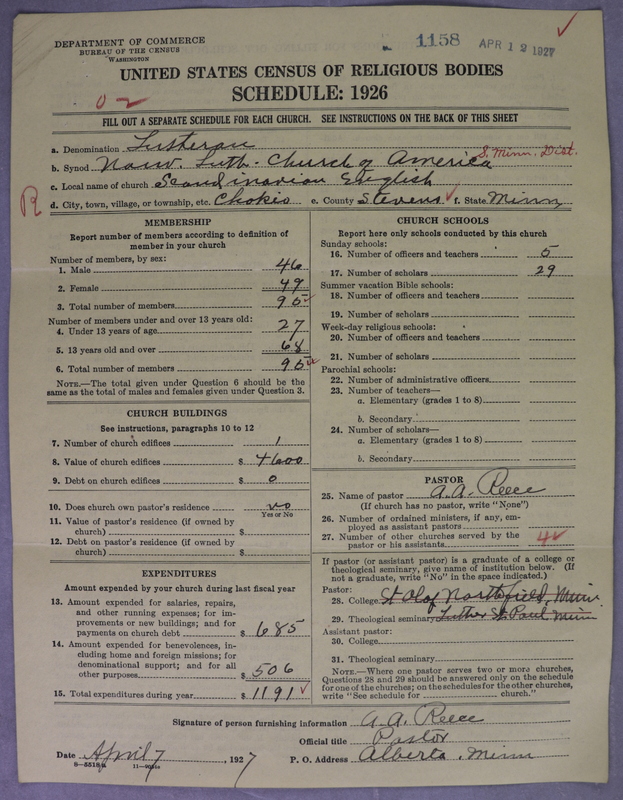 DEPARTMENT OF COMMERCE
BUREAU OF THE CENSUS
WASHINGTON
1158 APR 12 1927
UNITED STATES CENSUS OF RELIGIOUS BODIES
SCHEDULE: 1926
FILL OUT A SEPARATE SCHEDULE FOR EACH CHURCH. SEE INSTRUCTIONS ON THE BACK OF THIS SHEET
a. Denomination Lutheran
b. Synod Norw. Luth. Church of America S. Minn. Dist.
c. Local name of church Scandinavian English
d. City, town, village, or township, etc. Chokio e. County Stevens f. State Minn
R
MEMBERSHIP
Report number of members according to definition of
member in your church
Number of members, by sex:
1. Male 46
2. Female 49
3. Total number of members 95
Number of members under and over 13 years old:
4. Under 13 years of age 27
5. 13 years old and over 68
6. Total number of members 95
NOTE.—The total given under Question 6 should be the
same as the total of males and females given under Question 3.
CHURCH BUILDINGS
See instructions, paragraphs 10 to 12
7. Number of church edifices 1
8. Value of church edifices $ 4600
9. Debt on church edifices $ 0
10. Does church own pastor's residence no
Yes or No
11. Value of pastor's residence (if owned by
church) $
12. Debt on pastor's residence (if owned by
church) $
EXPENDITURES
Amount expended by your church during last fiscal year
13. Amount expended for salaries, repairs,
and other running expenses; for im-
provements or new buildings; and for
payments on church debt $ 685
14. Amount expended for benevolences, in-
cluding home and foreign missions; for
denominational support; and for all
other purposes $ 506
15. Total expenditures during year $ 1191
CHURCH SCHOOLS
Report here only schools conducted by this church
Sunday schools:
16. Number of officers and teachers 5
17. Number of scholars 29
Summer vacation Bible schools:
18. Number of officers and teachers
19. Number of scholars
Week-day religious schools:
20. Number of officers and teachers
21. Number of scholars
Parochial schools:
22. Number of administrative officers
23. Number of teachers—
a. Elementary (grades 1 to 8)
b. Secondary
24. Number of scholars—
a. Elementary (grades 1 to 8)
b. Secondary
PASTOR
25. Name of pastor A. A. Reece
(If church has no pastor, write "None")
26. Number of ordained ministers, if any, em-
ployed as assistant pastors
27. Number of other churches served by the
pastor or his assistants 4
If pastor (or assistant pastor) is a graduate of a college or
theological seminary, give name of institution below. (If
not a graduate, write "No" in the space indicated.)
Pastor:
28. College St Olaf Northfield, Minn
29. Theological seminary Luther St. Paul Minn
Assistant pastor:
30. College
31. Theological seminary
NOTE.—Where one pastor serves two or more churches,
Questions 28 and 29 should be answered only on the schedule
for one of the churches; on the schedules for the other churches,
write "See schedule for church."
Signature of person furnishing information A. A. Reece
Official title Pastor
Date April 7, 1927 P. O. Address Alberta, Minn